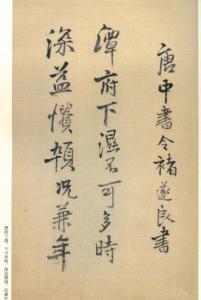 唐中書令褚遂良書
潭府下濕不可多時
深益憒頓況兼年